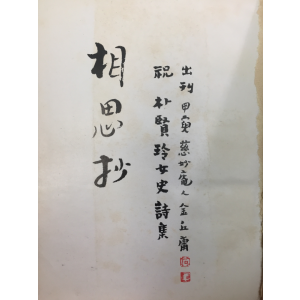 相思抄
祝 朴賢玲女史詩集
出刊 甲寅 慈 庵人 金丘庸